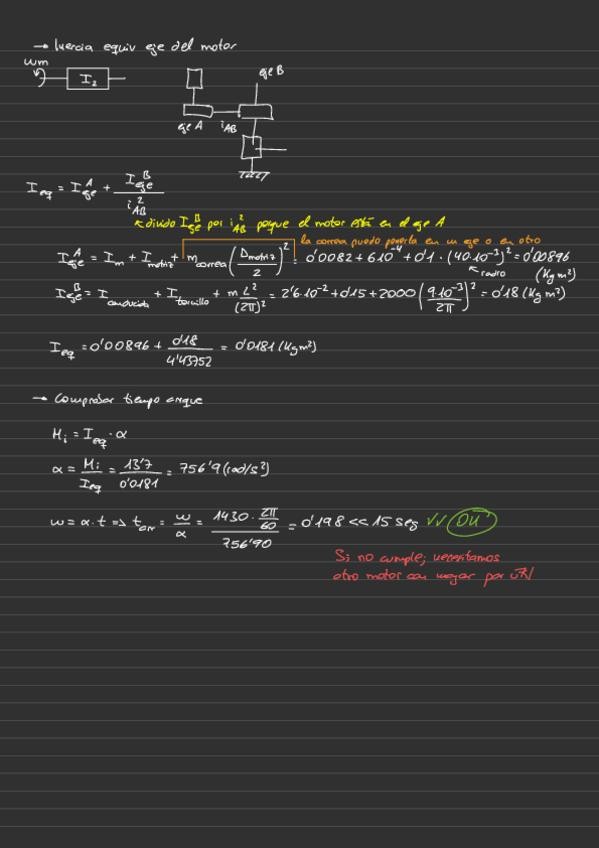 → Inercia equiv eje del motor
ωm
I₂
eje B
eje A
i_AB
I_eq = I_eje^A + I_eje^B / i_AB^2
↖ divido I_eje^B por i_AB^2 porque el motor está en el eje A
la correa puedo ponerla en un eje o en otro
I_eje^A = I_m + I_motriz + m_correa (D_motriz / 2)^2 = 0'0082 + 6·10^-4 + 0'1 · (40·10^-3)^2 = 0'00896 (Kg m²)
↖ radio
I_eje^B = I_conducida + I_tornillo + m L² / (2π)² = 2'6·10^-2 + 0'15 + 2000 (9·10^-3 / 2π)^2 = 0'18 (Kg m²)
I_eq = 0'00896 + 0'18 / 4'43752 = 0'0181 (Kg m²)
→ Comprobar tiempo arrque
M_i = I_eq · α
α = M_i / I_eq = 13'7 / 0'0181 = 756'9 (rad/s²)
ω = α · t => t_arr = ω / α = 1430 · 2π/60 / 756'90 = 0'198 << 15 seg ✓✓ OK
Si no cumple; necesitamos
otro motor con mayor par